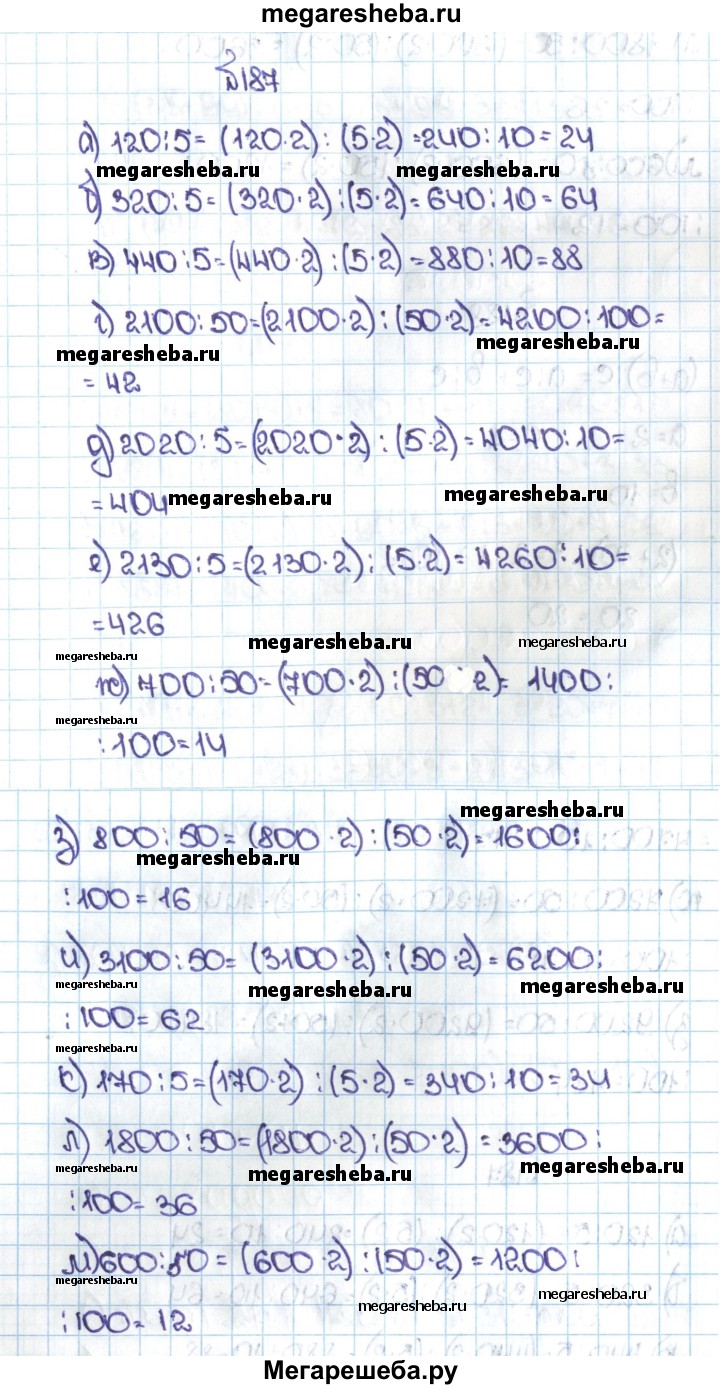 megaresheba.ru
№187
а) 120:5= (120·2) : (5·2) =240:10=24
megaresheba.ru megaresheba.ru
б) 320:5=(320·2):(5·2)=640:10=64
в) 440:5=(440·2):(5·2)=880:10=88
г) 2100:50=(2100·2):(50·2)=4200:100=
megaresheba.ru megaresheba.ru
=42
д) 2020:5=(2020·2):(5·2)=4040:10=
=404 megaresheba.ru megaresheba.ru
е) 2130:5=(2130·2):(5·2)=4260:10=
=426
megaresheba.ru megaresheba.ru megaresheba.ru
ж) 700:50=(700·2):(50·2)=1400:
megaresheba.ru
:100=14
megaresheba.ru
з) 800:50=(800·2):(50·2)=1600:
megaresheba.ru
:100=16
и) 3100:50=(3100·2):(50·2)=6200:
megaresheba.ru megaresheba.ru megaresheba.ru
:100=62
megaresheba.ru
к) 170:5=(170·2):(5·2)=340:10=34
л) 1800:50=(1800·2):(50·2)=3600:
megaresheba.ru megaresheba.ru megaresheba.ru
:100=36
м) 600:50=(600·2):(50·2)=1200:
megaresheba.ru megaresheba.ru megaresheba.ru
:100=12
Мегарешеба.ру